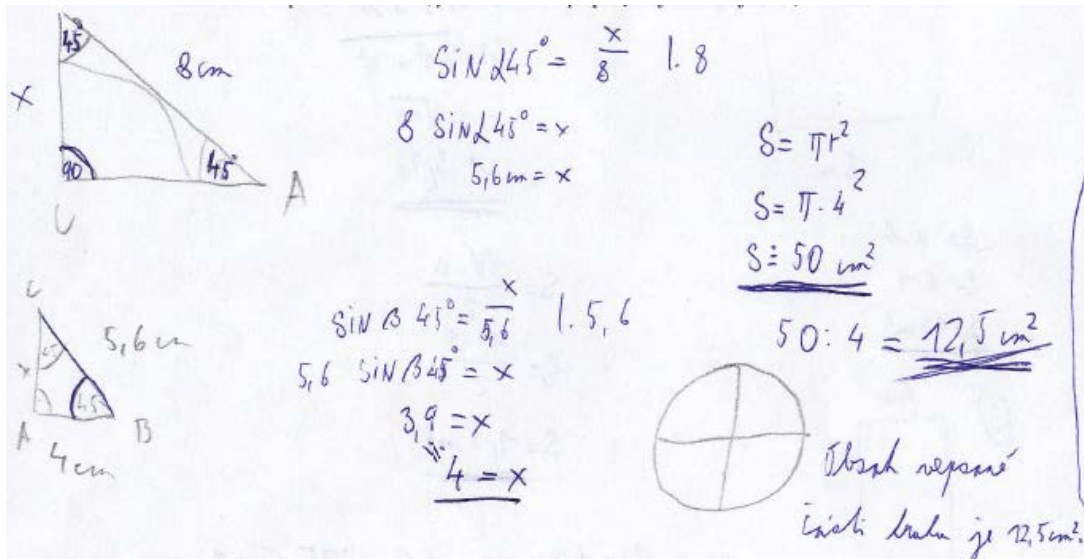 45°
8cm
x
90
45°
U
A
SiN α45° = x/8 |. 8
8 SiN α45° = x
5,6 cm = x
S = πr²
S = π · 4²
S ≐ 50 cm²
50 : 4 = 12,5 cm²
x
45
5,6 cm
45
A
B
4 cm
SiN β 45° = x/5,6 |. 5,6
5,6 SiN β 45° = x
3,9 = x
4 = x
Obsah vepsané
části kruhu je 12,5 cm².